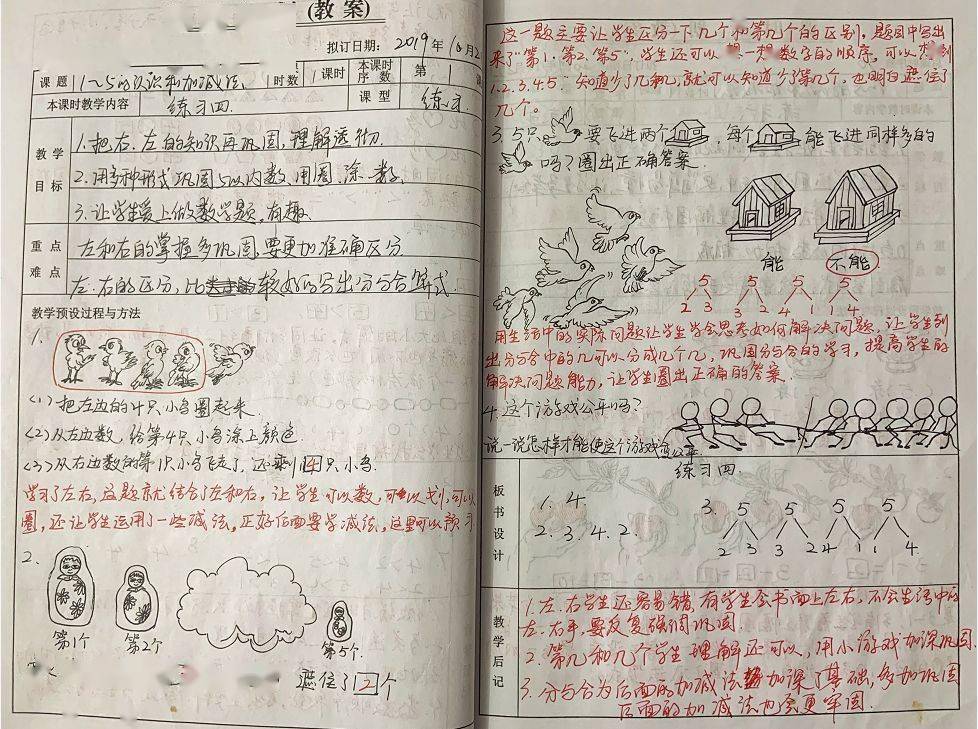 (教 案)
拟订日期: 2019年10月2
课题 1~5的认识和加减法 时数 1课时 本课时序数 第 1
本课时教学内容 练习四. 课型 练习.
教学目标
1.把右、左的知识再巩固,理解透彻.
2.用多种形式巩固5以内数,用圈、涂、数.
3.让学生爱上做数学题,有趣.
重点 左和右的掌握多巩固,要更加准确区分
难点 左、右的区分,比较好的写出分与合算式.
教学预设过程与方法
1.
(1)把左边的4只小鸟圈起来.
(2)从左边数,给第4只小鸟涂上颜色.
(3)从右边数的第1只小鸟飞走了,还剩4只小鸟.
学习了左右,这题就结合了左和右,让学生可以数,可以划,可以
圈,还让学生运用了一些减法,正好后面要学减法,这里可以预习
2.
第1个 第2个 第5个.
遮住了2个
这一题主要让学生区分一下几个和第几个的区别,题目中写出
来了"第1、第2、第5",学生还可以 一 数字的顺序,可以
1.2.3.4.5. 知道少了几和几,就可以知道少了第几个,也明白遮住了
几个。
3.5只 要飞进两个 ,每个 能飞进同样多的
吗?圈出正确答案.
能 不能
5 5 5 5
2 3 3 2 4 1 1 4
用生活中的实际问题让学生学会思考如何解决问题,让学生列
出分与合中的几可以分成几个几,巩固分与合的学习,提高学生的
解决问题能力,让学生圈出正确的答案.
4.这个游戏公平吗?
说一说怎样才能使这个游戏变公平.
板书设计
练习四
1. 4. 3. 5 5 5 5
2. 3. 4. 2. 2 3 3 2 4 1 1 4.
教学后记
1.左、右学生还容易错,有学生会书面上左右,不会生活中的
左、右手,要反复强调巩固.
2.第几和几个学生理解还可以,用小游戏加深巩固.
3.分与合为后面的加减法加深了基础,多加巩固
后面的加减法力会更牢固.